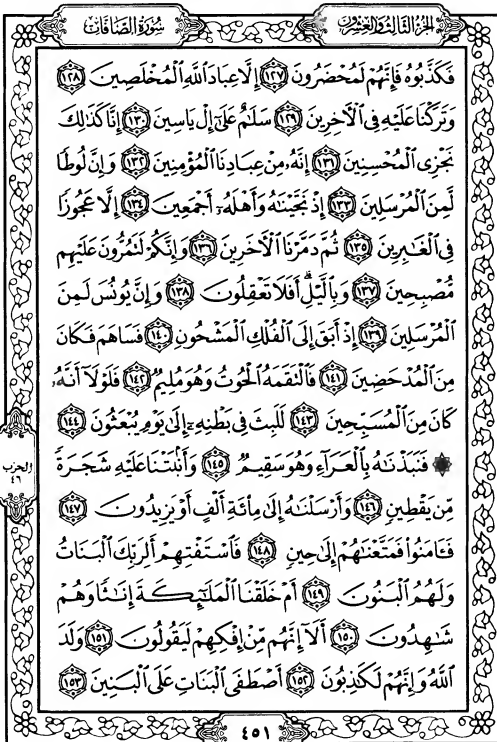 سُورَةُ الصَّافَّاتِ
الجُزءُ الثَّالِثُ وَالعِشْرُونَ
فَكَذَّبُوهُ فَإِنَّهُمْ لَمُحْضَرُونَ ١٢٧ إِلَّا عِبَادَ ٱللَّهِ ٱلْمُخْلَصِينَ ١٢٨
وَتَرَكْنَا عَلَيْهِ فِى ٱلْأَخِرِينَ ١٢٩ سَلَٰمٌ عَلَىٰٓ إِلْ يَاسِينَ ١٣٠ إِنَّا كَذَٰلِكَ
نَجْزِى ٱلْمُحْسِنِينَ ١٣١ إِنَّهُۥ مِنْ عِبَادِنَا ٱلْمُؤْمِنِينَ ١٣٢ وَإِنَّ لُوطًا
لَّمِنَ ٱلْمُرْسَلِينَ ١٣٣ إِذْ نَجَّيْنَٰهُ وَأَهْلَهُۥٓ أَجْمَعِينَ ١٣٤ إِلَّا عَجُوزًا
فِى ٱلْغَٰبِرِينَ ١٣٥ ثُمَّ دَمَّرْنَا ٱلْأَخَرِينَ ١٣٦ وَإِنَّكُمْ لَتَمُرُّونَ عَلَيْهِم
مُّصْبِحِينَ ١٣٧ وَبِٱلَّيْلِ ۗ أَفَلَا تَعْقِلُونَ ١٣٨ وَإِنَّ يُونُسَ لَمِنَ
ٱلْمُرْسَلِينَ ١٣٩ إِذْ أَبَقَ إِلَى ٱلْفُلْكِ ٱلْمَشْحُونِ ١٤٠ فَسَاهَمَ فَكَانَ
مِنَ ٱلْمُدْحَضِينَ ١٤١ فَٱلْتَقَمَهُ ٱلْحُوتُ وَهُوَ مُلِيمٌ ١٤٢ فَلَوْلَآ أَنَّهُۥ
كَانَ مِنَ ٱلْمُسَبِّحِينَ ١٤٣ لَلَبِثَ فِى بَطْنِهِۦٓ إِلَىٰ يَوْمِ يُبْعَثُونَ ١٤٤
۞ فَنَبَذْنَٰهُ بِٱلْعَرَآءِ وَهُوَ سَقِيمٌ ١٤٥ وَأَنۢبَتْنَا عَلَيْهِ شَجَرَةً
مِّن يَقْطِينٍ ١٤٦ وَأَرْسَلْنَٰهُ إِلَىٰ مِا۟ئَةِ أَلْفٍ أَوْ يَزِيدُونَ ١٤٧
فَـَٔامَنُوا۟ فَمَتَّعْنَٰهُمْ إِلَىٰ حِينٍ ١٤٨ فَٱسْتَفْتِهِمْ أَلِرَبِّكَ ٱلْبَنَاتُ
وَلَهُمُ ٱلْبَنُونَ ١٤٩ أَمْ خَلَقْنَا ٱلْمَلَٰٓئِكَةَ إِنَٰثًا وَهُمْ
شَٰهِدُونَ ١٥٠ أَلَآ إِنَّهُم مِّنْ إِفْكِهِمْ لَيَقُولُونَ ١٥١ وَلَدَ
ٱللَّهُ وَإِنَّهُمْ لَكَٰذِبُونَ ١٥٢ أَصْطَفَى ٱلْبَنَاتِ عَلَى ٱلْبَنِينَ ١٥٣
الحزب
٤٦
٤٥١